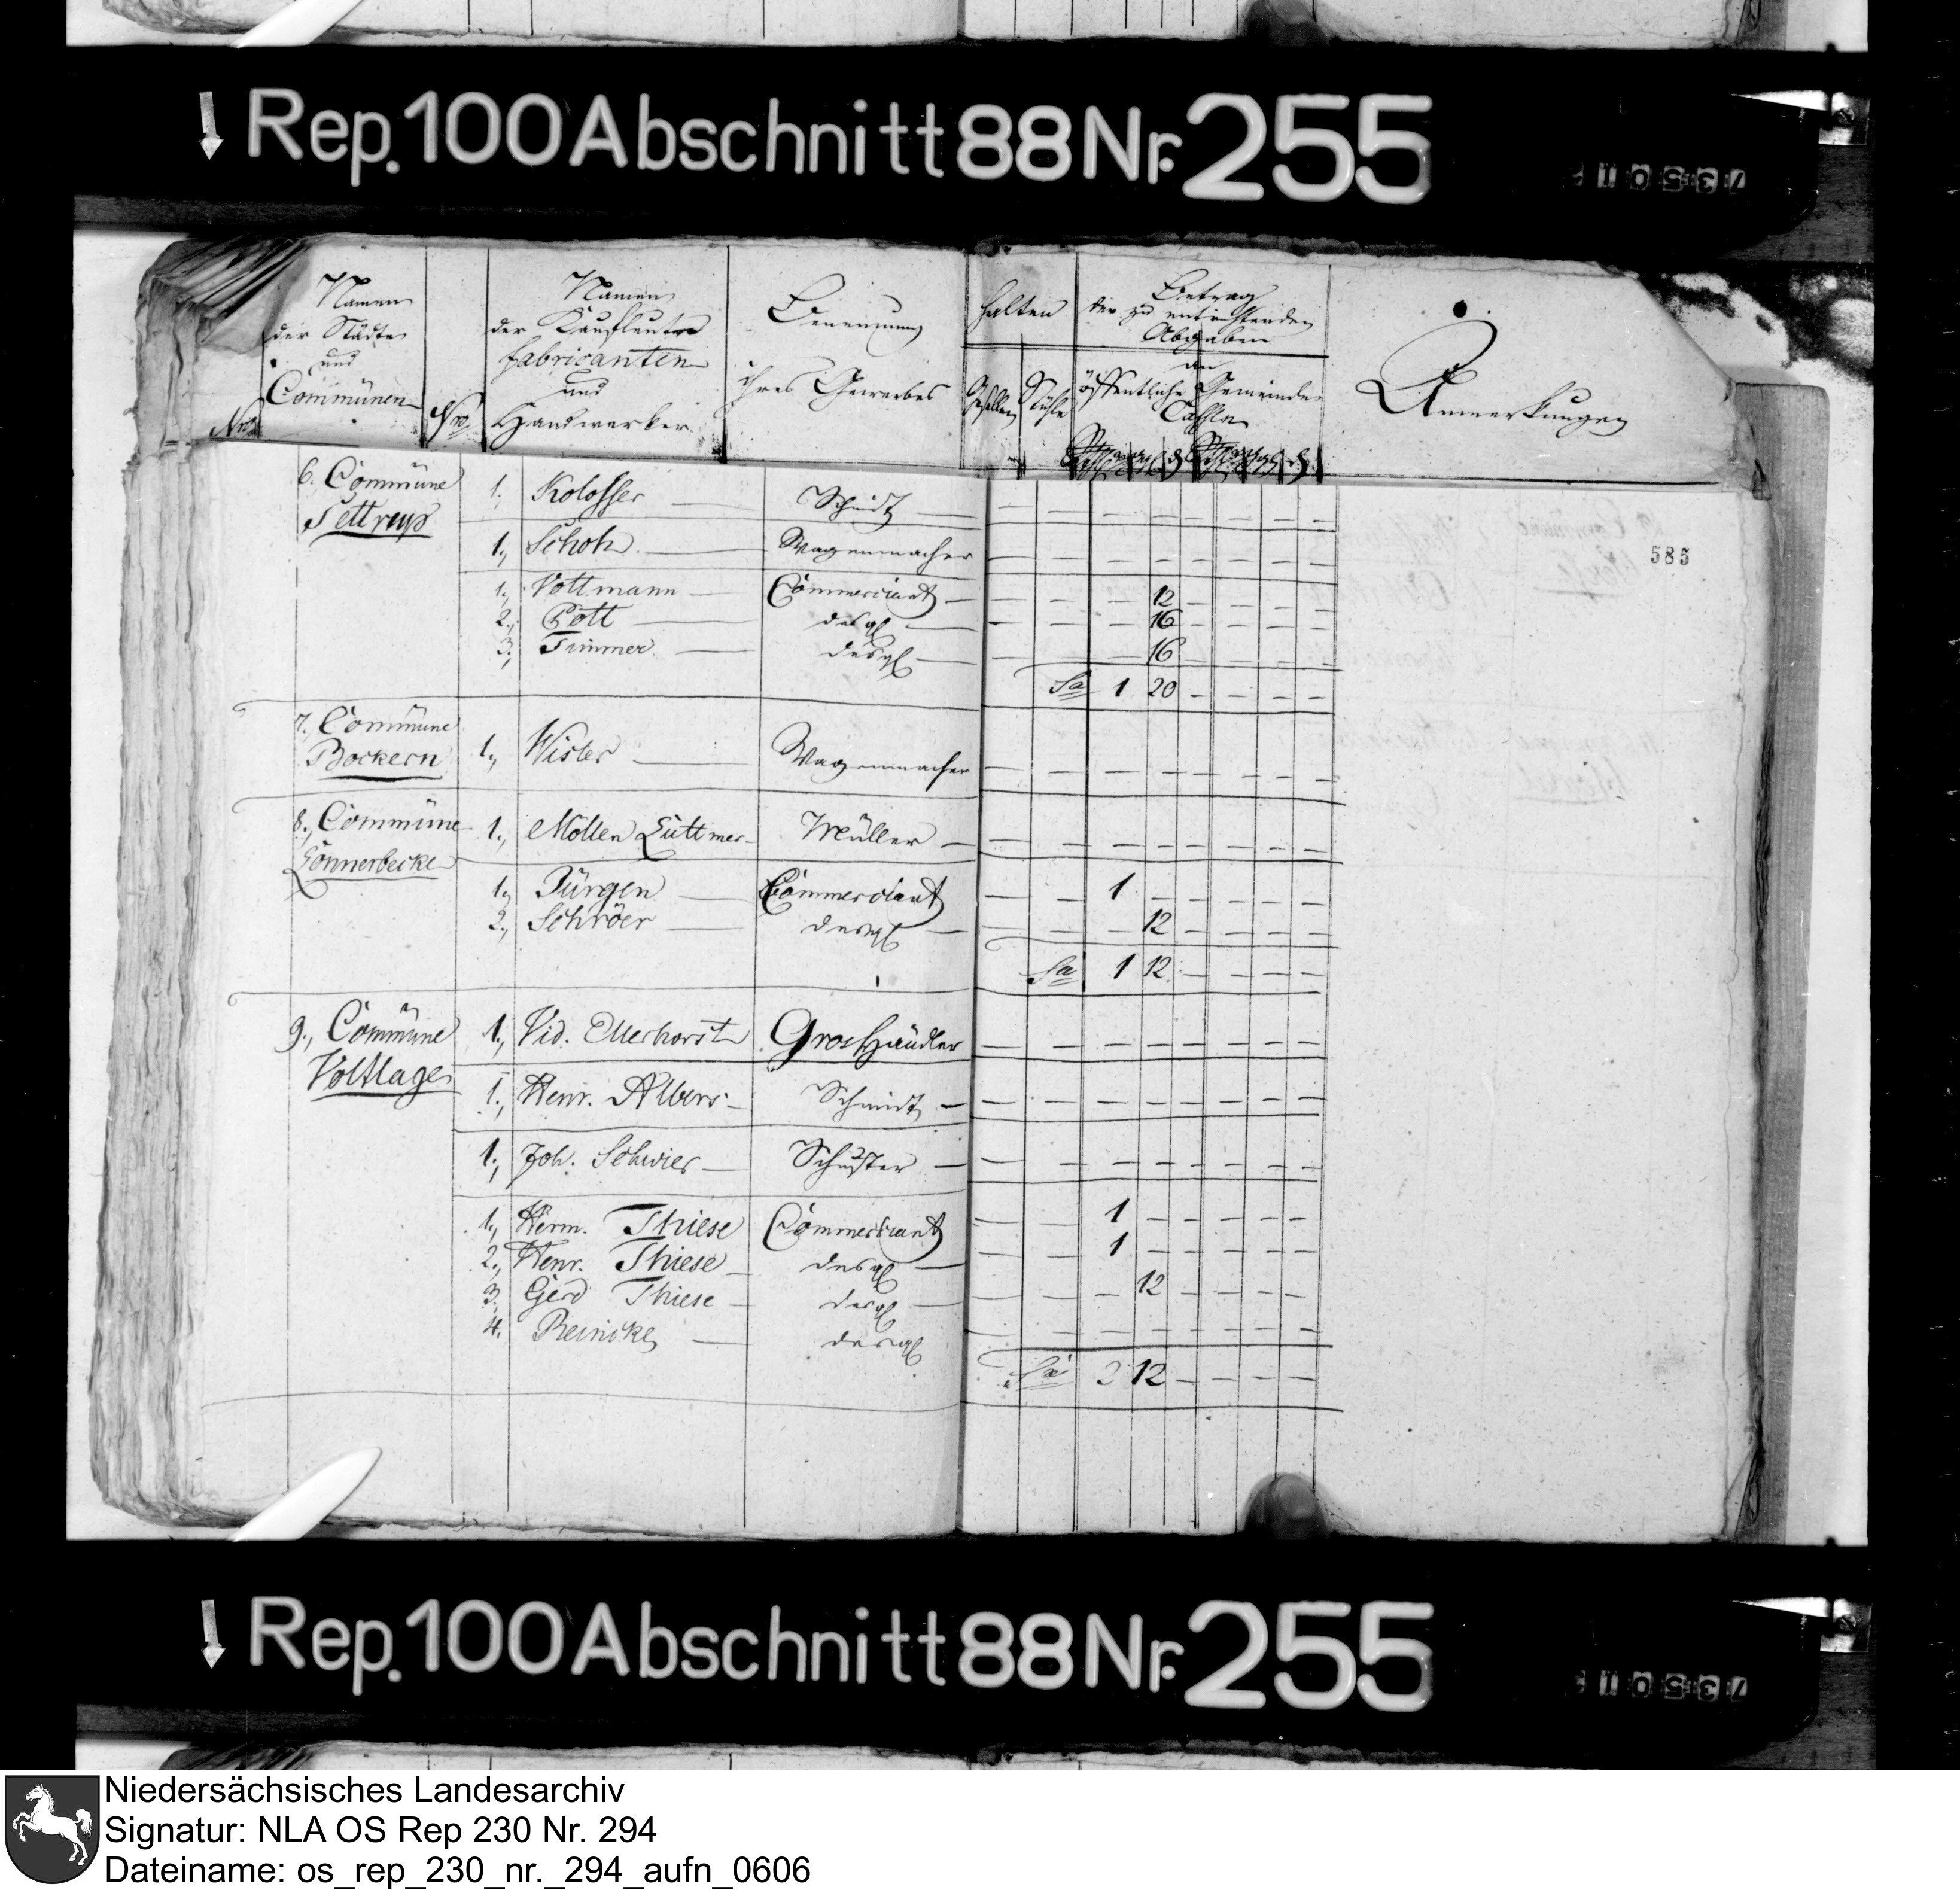 Rep. 100 Abschnitt 88 Nr. 255
Namen der Städte und Communen
Nro.
Namen der Kaufleute fabricanten und Handwerker
Benennung ihres Gewerbes
halten
Gesellen
Stühle
Betrag der zu entrichtenden Abgaben
an
öffentliche Gemeinde Cassen
Anmerkungen
585
6., Commüne Settrup
1. Kolosser — Schmidt — — — — — — — — —
1., Schoh — Wagenmacher — — — — — — — —
1., Voltmann — Commerciant — — — — 12 — — — —
2., Pott — desgl — — — — 16 — — — —
3., Timmer — desgl — — — — 16 — — — —
Sa 1 20 — — — —
7., Commüne Bockern
1., Wister — Wagenmacher — — — — — — — —
8., Commüne Lonnerbecke
1., Möllen Lüttmer — Müller — — — — — — — — —
1., Jürgen — Commerciant — — 1 — — — — —
2., Schröer — desgl — — — — 12 — — — —
Sa 1 12 — — — —
9., Commüne Voltlage
1., Vid. Ellerhorst Gros Händler — — — — — — — —
1., Henr. Albers — Schmidt — — — — — — — — —
1., Joh. Schwier — Schuster — — — — — — — — —
1., Herm. Thiese Commerciant — — 1 — — — — —
2., Henr. Thiese — desgl — — — 1 — — — — —
3. Gerd Thiese — desgl — — — — 12 — — — —
4. Reinike — desgl — — — — — — — —
Sa 2 12 — — — —
Rep. 100 Abschnitt 88 Nr. 255
Niedersächsisches Landesarchiv
Signatur: NLA OS Rep 230 Nr. 294
Dateiname: os_rep_230_nr._294_aufn_0606